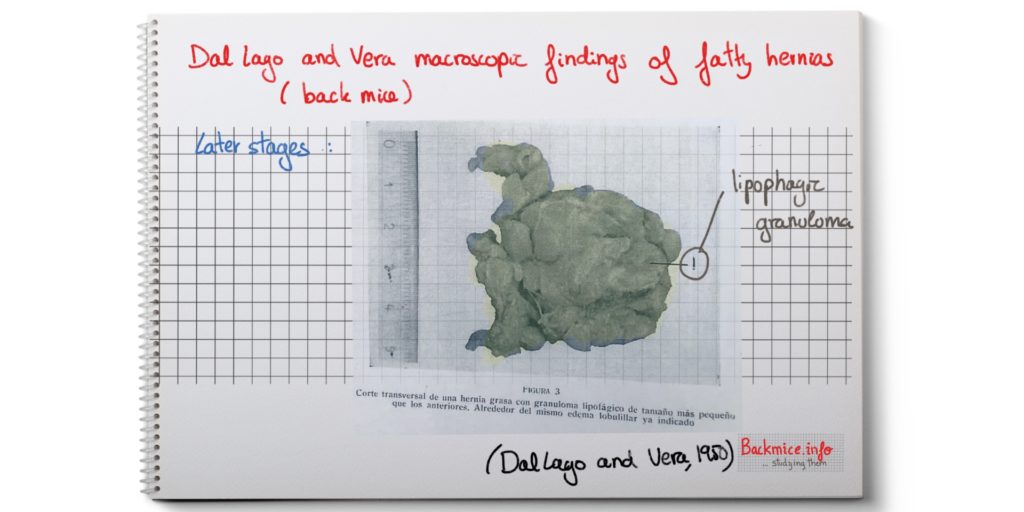 Dal Lago and Vera macroscopic findings of fatty hernias
(back mice)
Later stages :
lipophagic
granuloma
0
1
2
4
5
1
FIGURA 3
Corte transversal de una hernia grasa con granuloma lipofágico de tamaño más pequeño
que los anteriores. Alrededor del mismo edema lobulillar ya indicado
(Dal Lago and Vera, 1950)
Backmice.info
... studying them